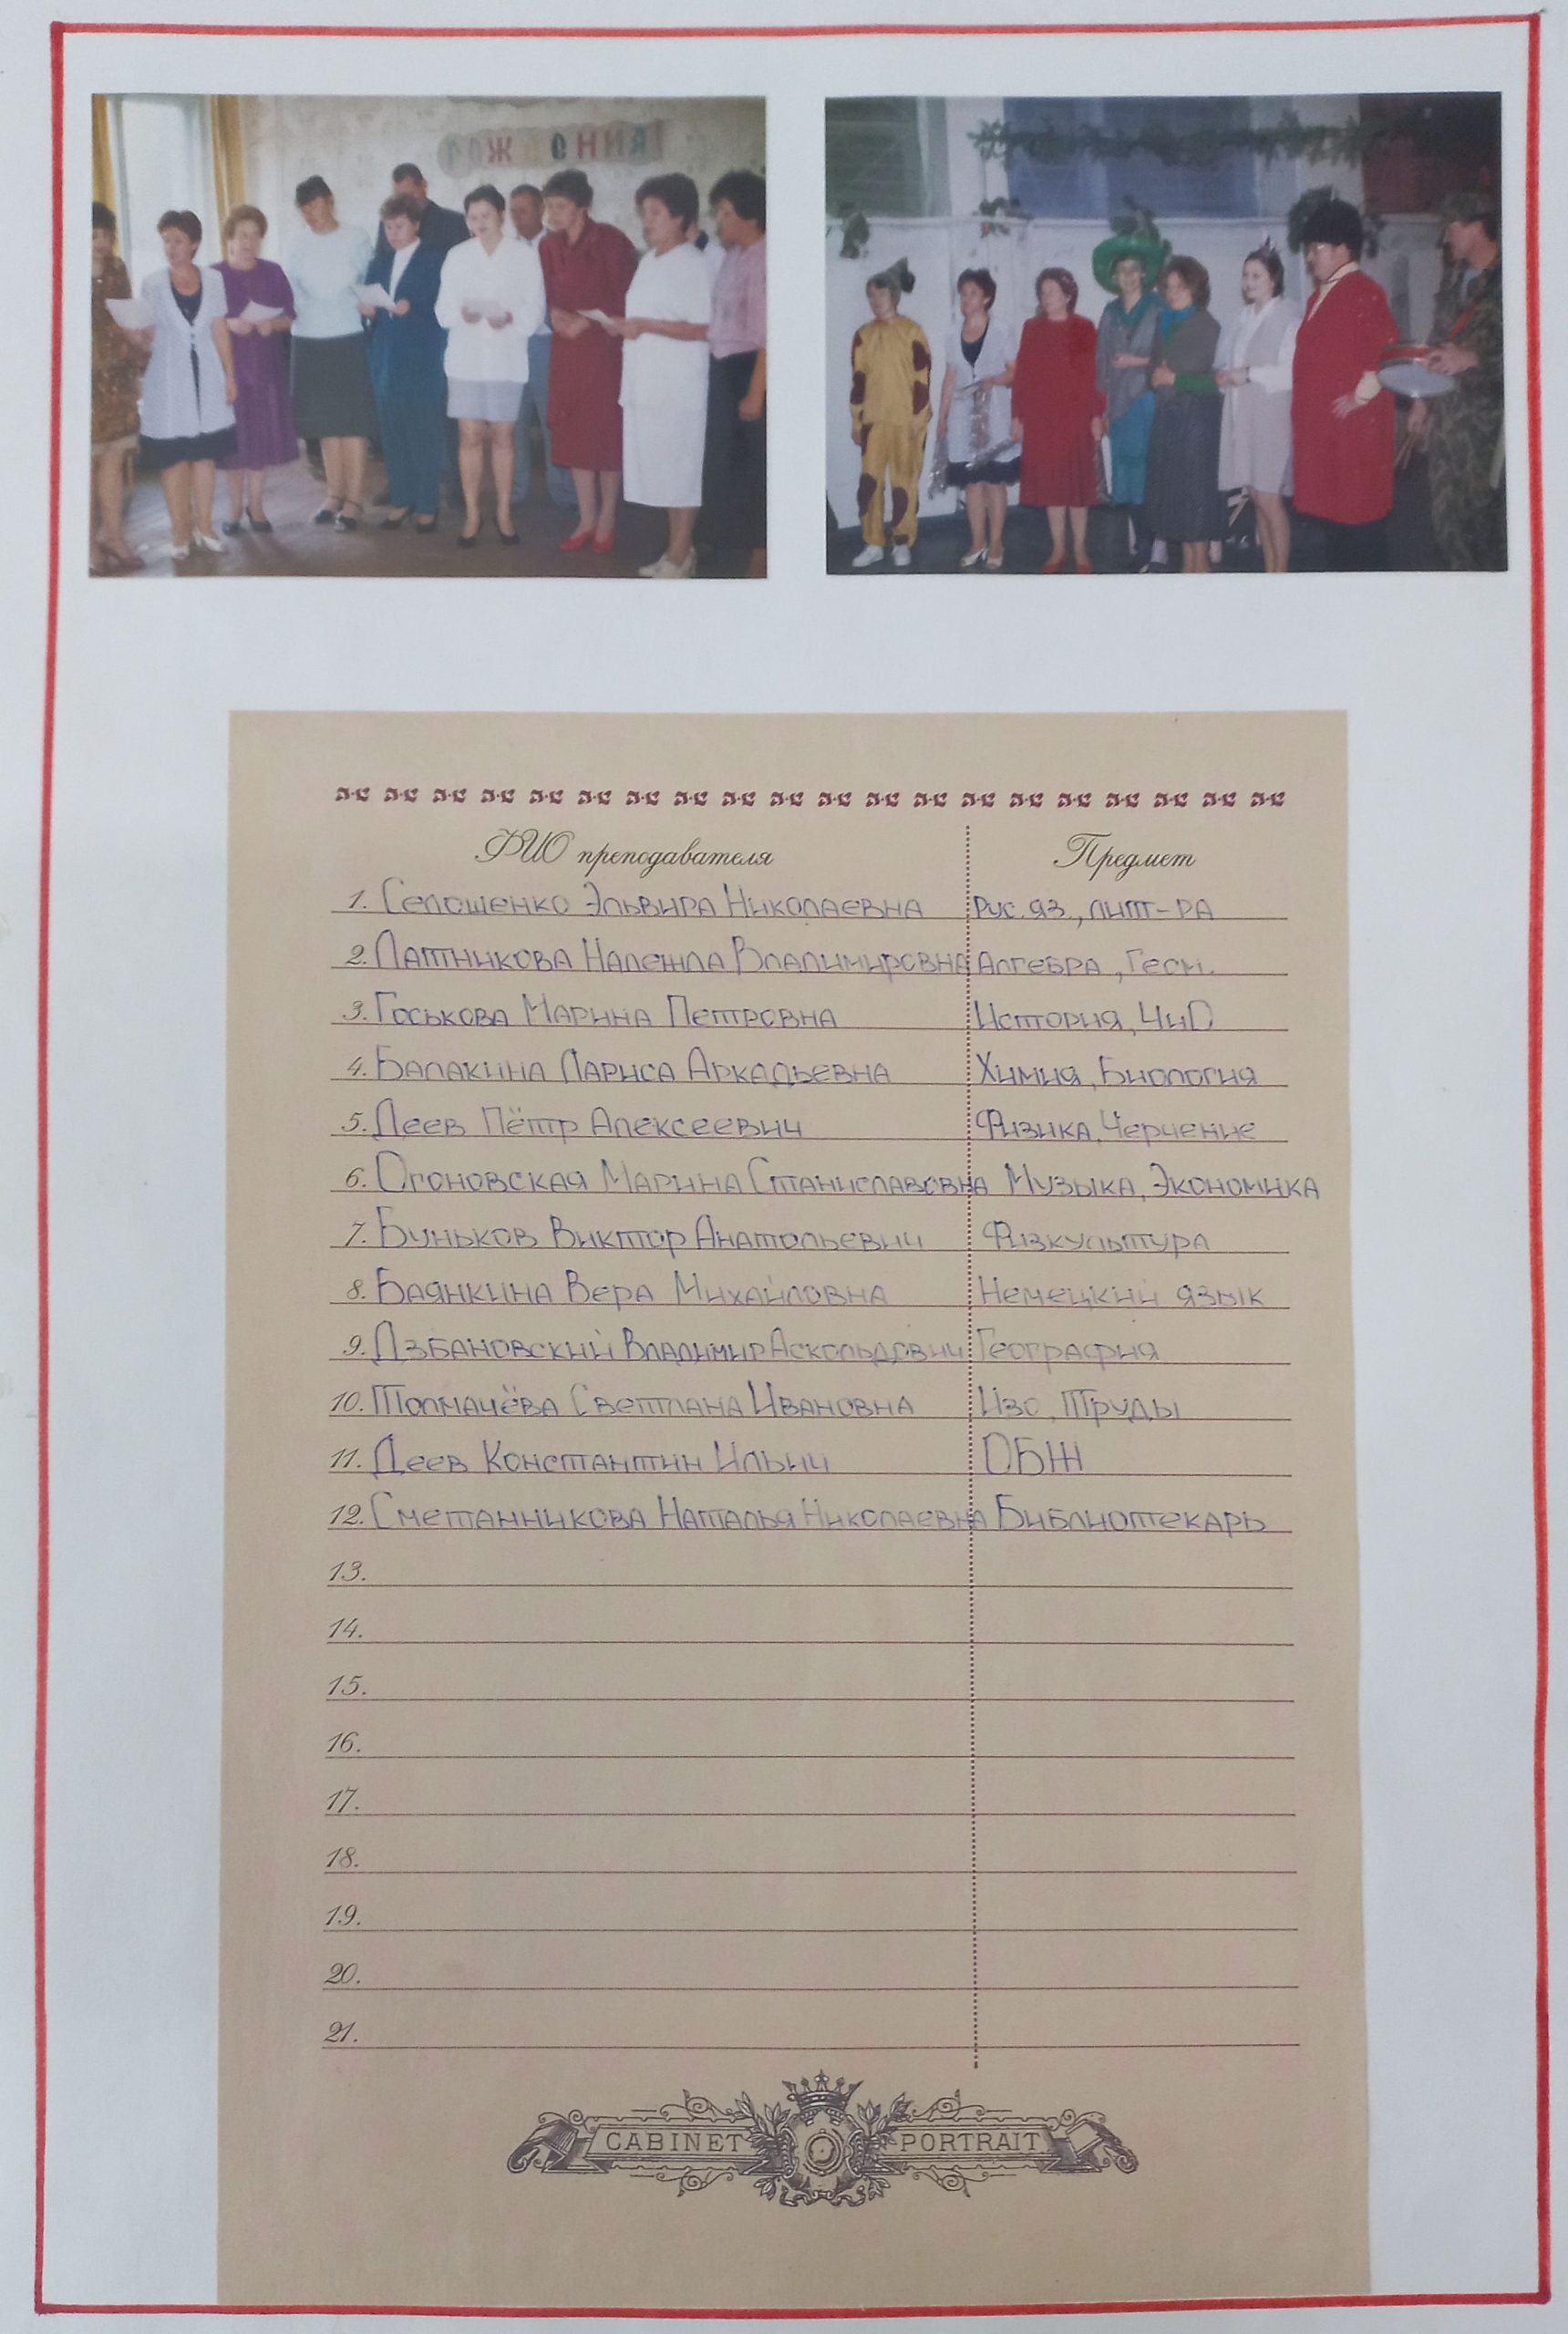 ФИО преподавателя Предмет
1. Селошенко Эльвира Николаевна Рус. яз., лит-ра
2. Латникова Надежда Владимировна Алгебра, Геом.
3. Госькова Марина Петровна История, ЧиО
4. Балакина Лариса Аркадьевна Химия, Биология
5. Деев Пётр Алексеевич Физика, Черчение
6. Огоновская Марина Станиславовна Музыка, Экономика
7. Буньков Виктор Анатольевич Физкультура
8. Баянкина Вера Михайловна Немецкий язык
9. Дзбановский Владимир Аскольдович География
10. Толмачёва Светлана Ивановна Изо, Труды
11. Деев Константин Ильич ОБЖ
12. Сметанникова Наталья Николаевна Библиотекарь
13.
14.
15.
16.
17.
18.
19.
20.
21.
CABINET PORTRAIT